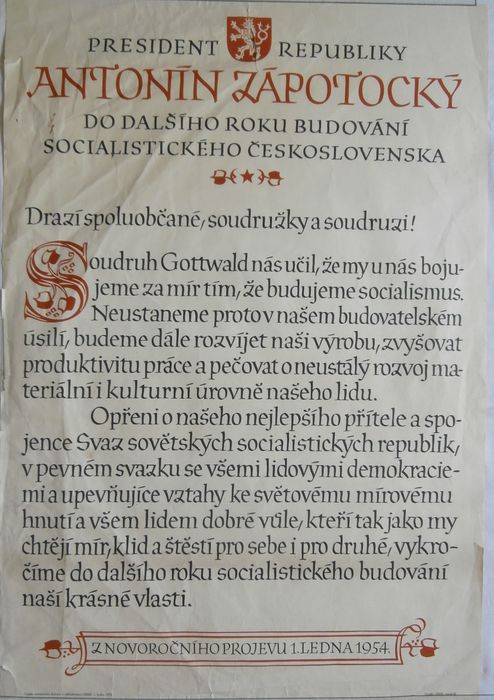 PRESIDENT REPUBLIKY
ANTONÍN ZÁPOTOCKÝ
DO DALŠÍHO ROKU BUDOVÁNÍ
SOCIALISTICKÉHO ČESKOSLOVENSKA
Drazí spoluobčané, soudružky a soudruzi!
Soudruh Gottwald nás učil, že my u nás boju-
jeme za mír tím, že budujeme socialismus.
Neustaneme proto v našem budovatelském
úsilí, budeme dále rozvíjet naši výrobu, zvyšovat
produktivitu práce a pečovat o neustálý rozvoj ma-
teriální i kulturní úrovně našeho lidu.
Opřeni o našeho nejlepšího přítele a spo-
jence Svaz sovětských socialistických republik,
v pevném svazku se všemi lidovými demokracie-
mi a upevňujíce vztahy ke světovému mírovému
hnutí a všem lidem dobré vůle, kteří tak jako my
chtějí mír, klid a štěstí pro sebe i pro druhé, vykro-
číme do dalšího roku socialistického budování
naší krásné vlasti.
Z NOVOROČNÍHO PROJEVU 1. LEDNA 1954.